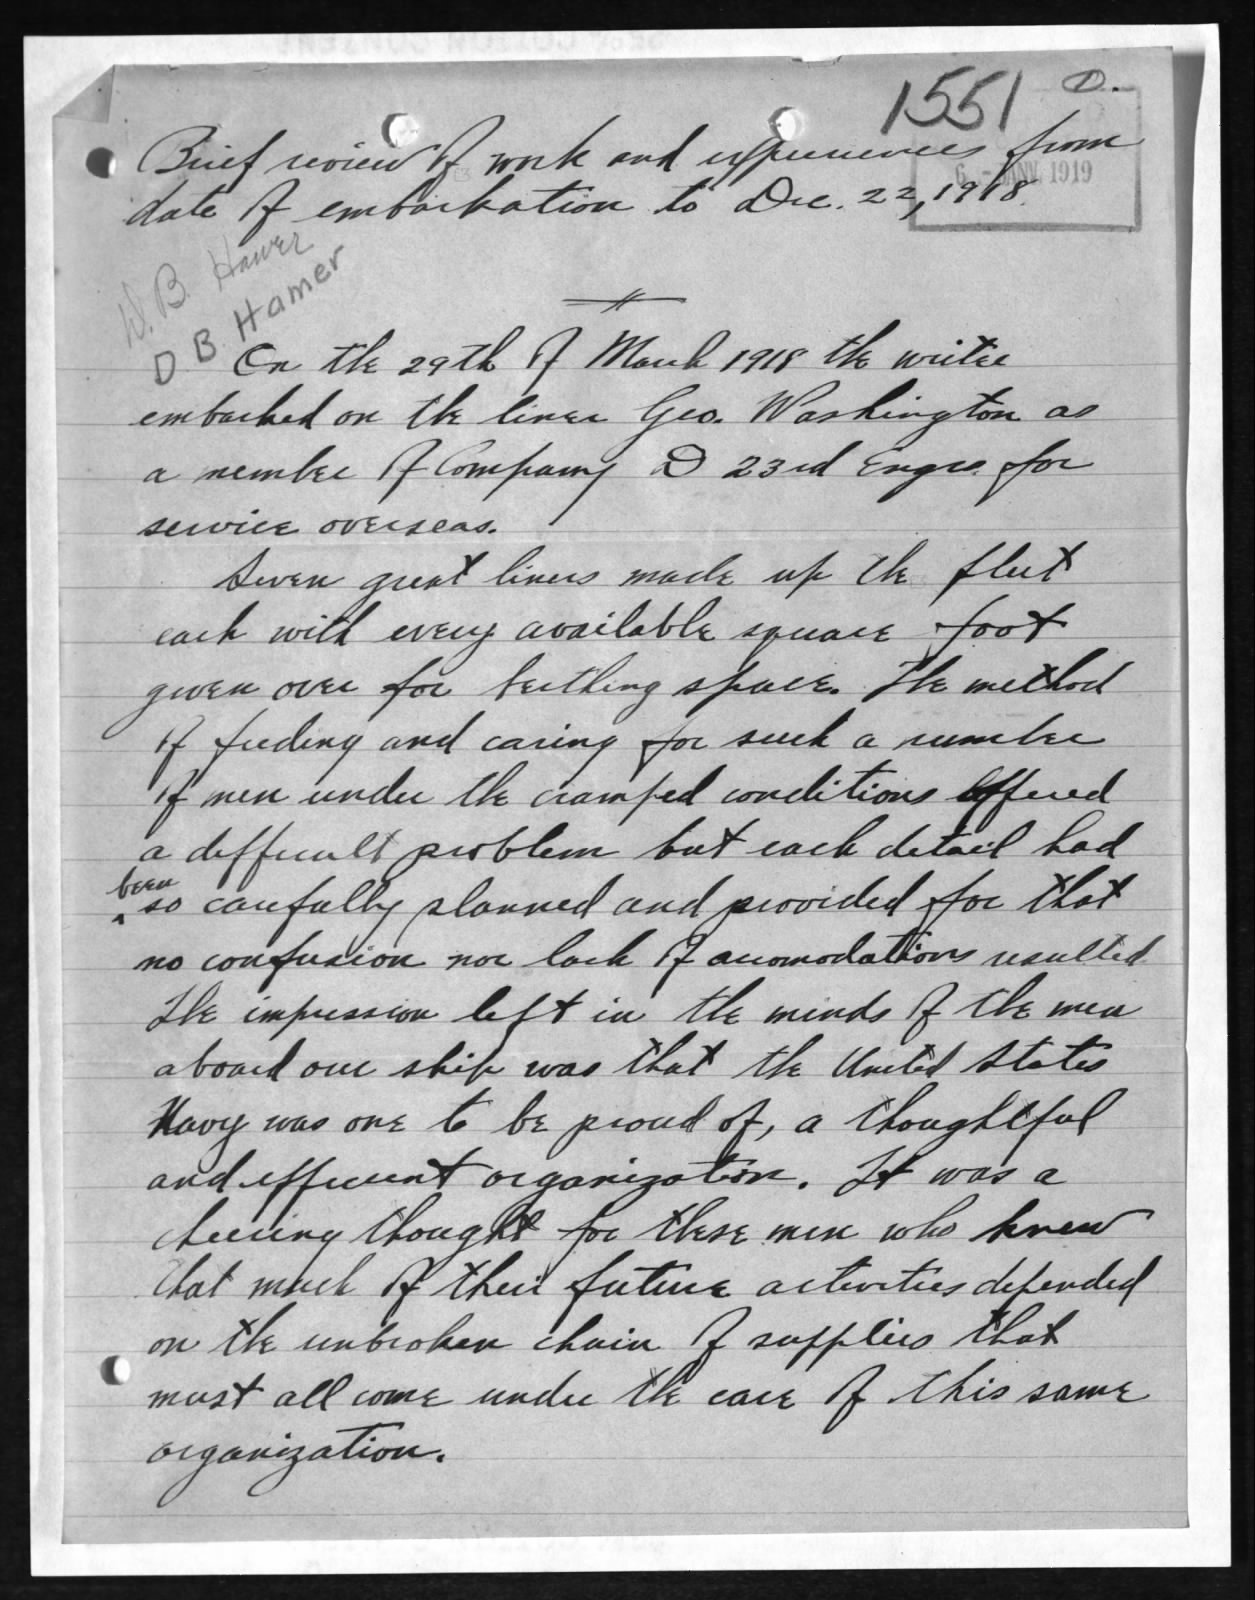 1551 D.
6 - JANV. 1919
Brief review of work and experiences from
date of embarkation to Dec. 22, 1918.
W. B. Hamer
D B Hamer
On the 29th of March 1918 the writer
embarked on the liner Geo. Washington as
a member of Company D 23rd Engrs. for
service overseas.
Seven great liners made up the fleet
each with every available square foot
given over for berthing space. The method
of feeding and caring for such a number
of men under the cramped conditions offered
a difficult problem but each detail had
been
so carefully planned and provided for that
no confusion nor lack of acomodations resulted.
The impression left in the minds of the men
aboard our ship was that the United States
Navy was one to be proud of, a thoughtful
and efficient organization. It was a
cheering thought for these men who knew
that much of their future activities depended
on the unbroken chain of supplies that
must all come under the care of this same
organization.